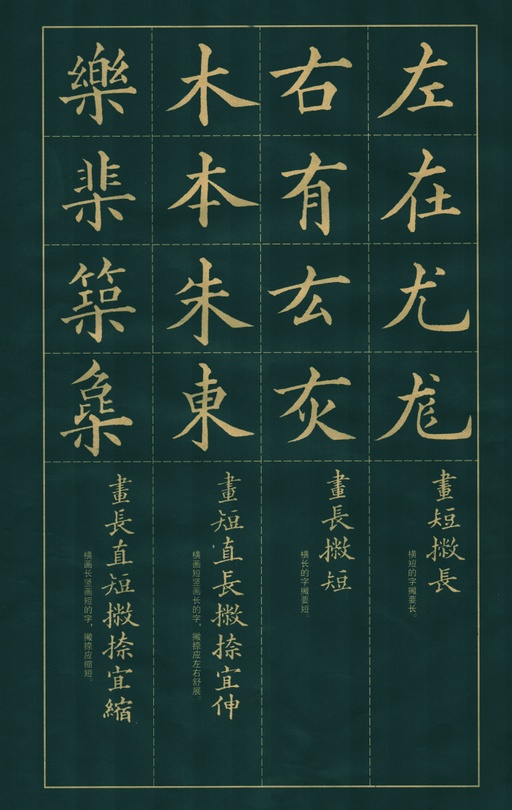 左在尤尨
畫短撇長
横短的字撇要长。
右有厷灰
畫長撇短
横长的字撇要短。
木本朱東
畫短直長撇捺宜伸
横画短竖画长的字，撇捺应左右舒展。
樂棐築
畫長直短撇捺宜縮
横画长竖画短的字，撇捺应缩短。